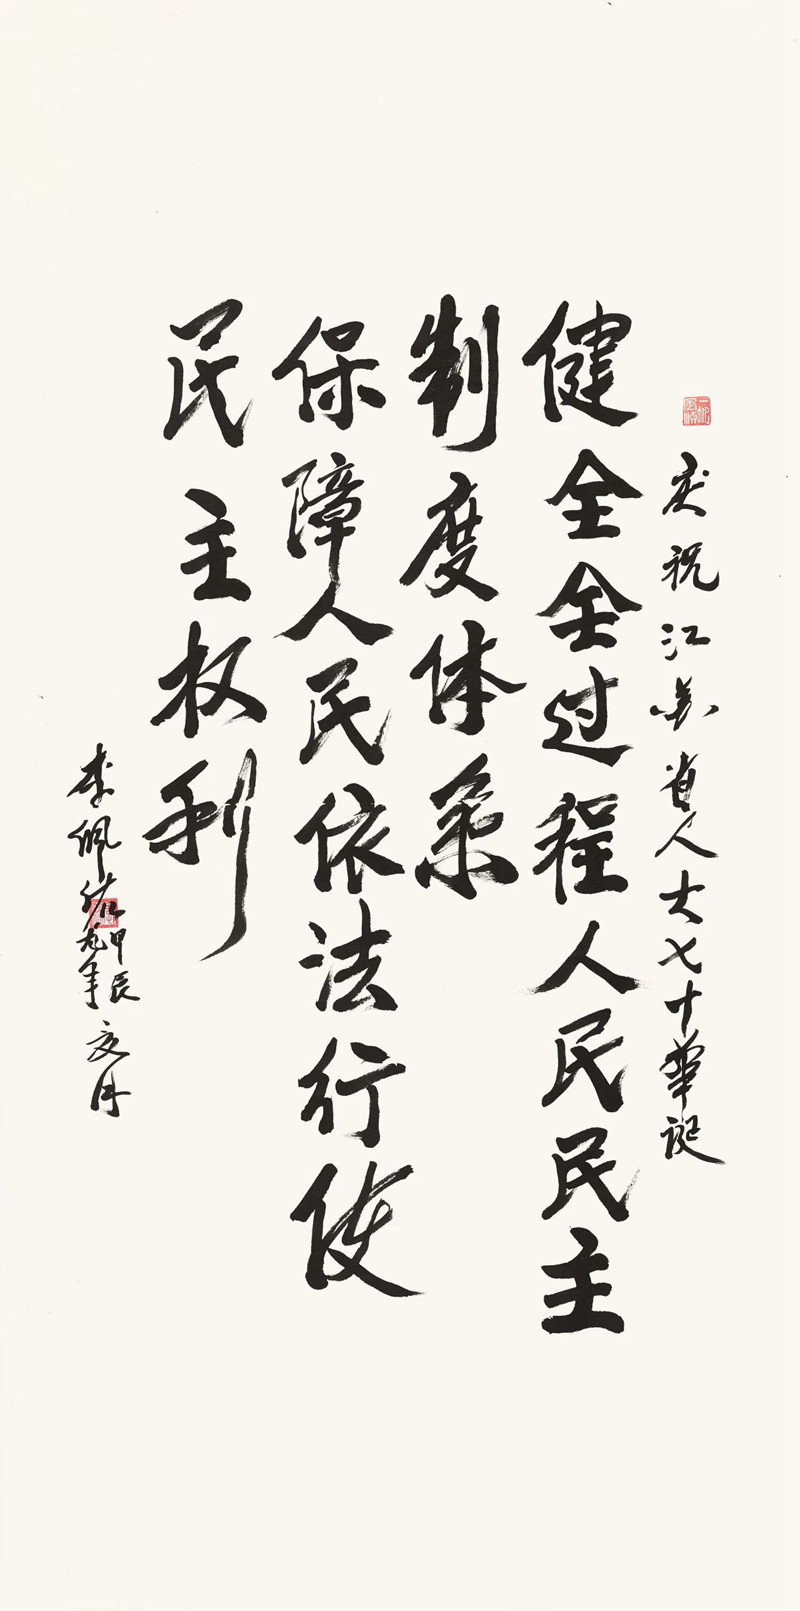 庆祝江苏省人大七十华诞
健全全过程人民民主
制度体系
保障人民依法行使
民主权利
李佩佑
甲辰
九年
夏月